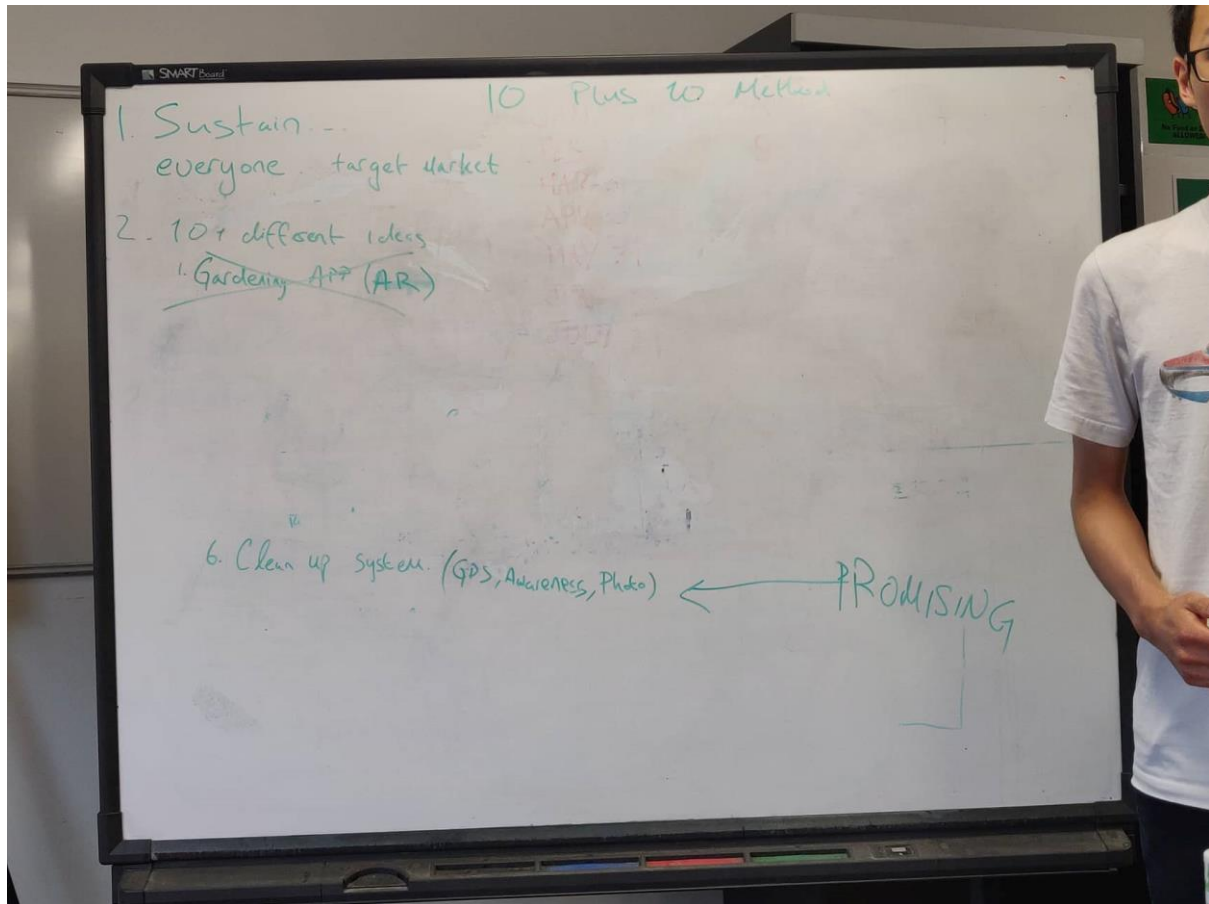 SMART Board
10 Plus 10 Method
1. Sustain...
everyone target Market
2. 10+ different ideas
1. Gardening APP (AR)
6. Clean up system. (GPS, Awareness, Photo)
PROMISING